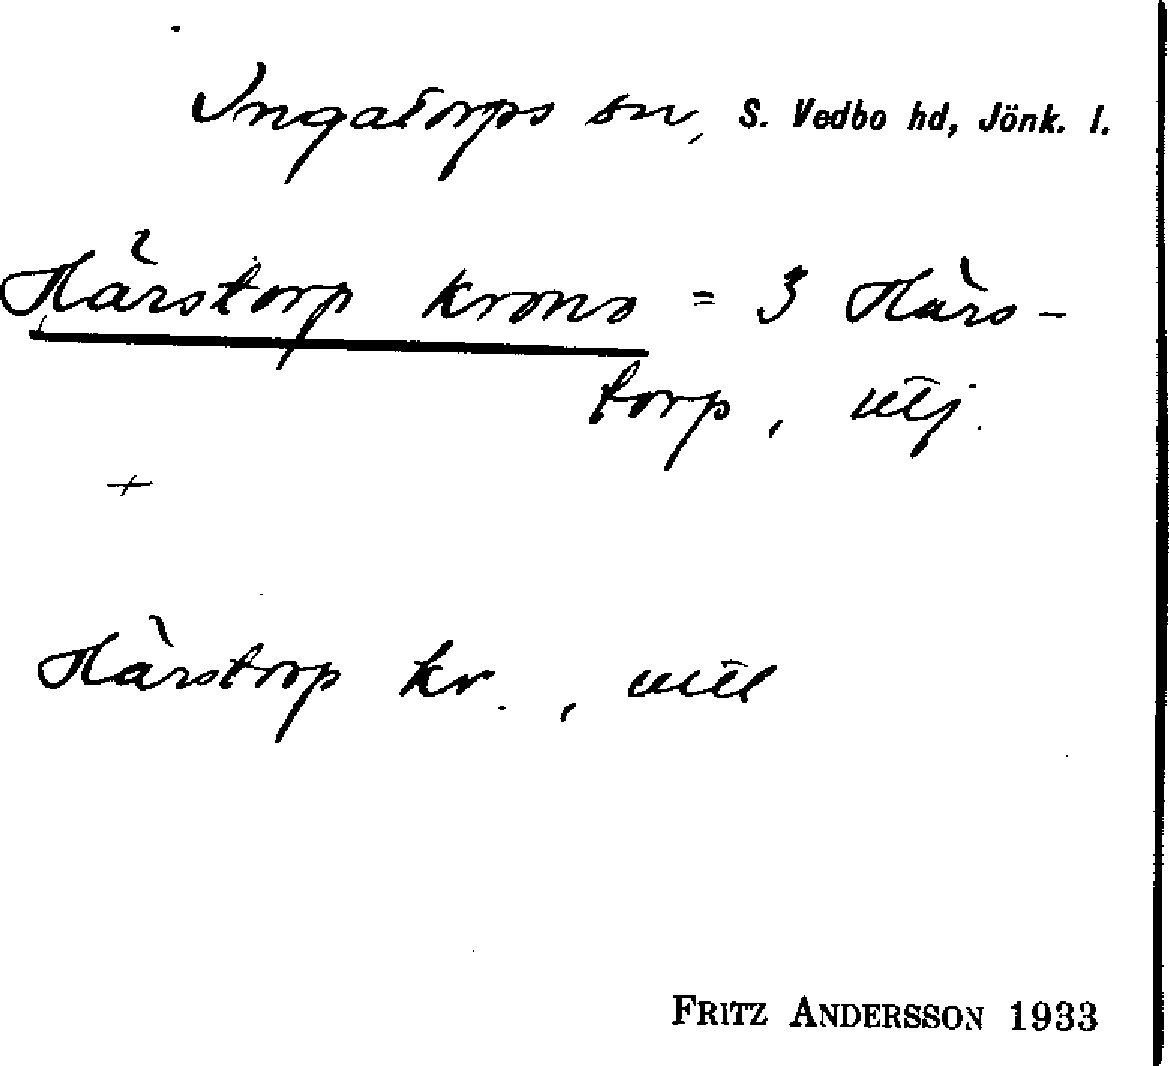 Ingatorps sn, S. Vedbo hd, Jönk. l.
Härstorp krono = 3 Härs-
torp, utj.
+
Härstorp kr.,
FRITZ ANDERSSON 1933